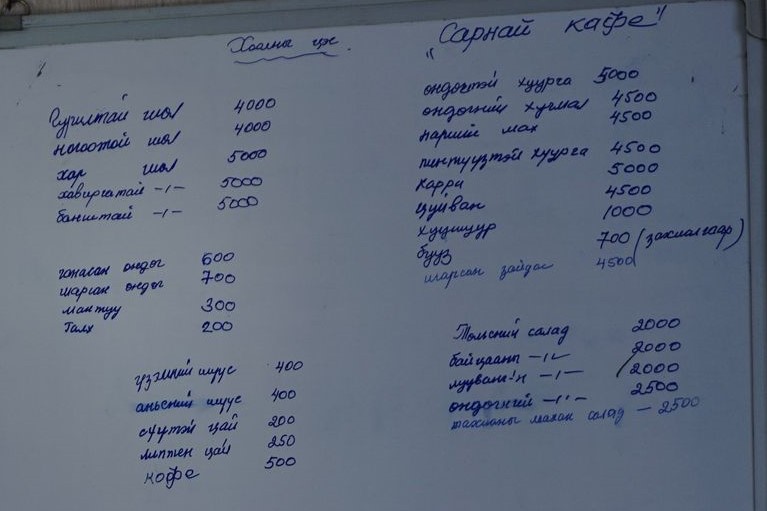 Хоолны цэс
"Сарнай кафе"
Гурилтай шөл 4000
ногоотой шөл 4000
хар шөл 5000
хавиргатай -"- 5000
банштай -"- 5000
чанасан өндөг 600
шарсан өндөг 700
мантуу 300
Талх 200
үзэмний шүүс 400
аньсний шүүс 400
сүүтэй цай 200
липтен цай 250
кофе 500
өндөгтэй хуурга 5000
өндөгний хучмал 4500
нарийн мах 4500
пинтүүзтэй хуурга 4500
Карри 5000
Цуйван 4500
хуушуур 1000
бууз 700 (захиалгаар)
шарсан зайдас 4500
Төмсний салад 2000
байцааны -"- 2000
луувангийн -"- 2000
өндөгний -"- 2500
тахианы махан салад - 2500